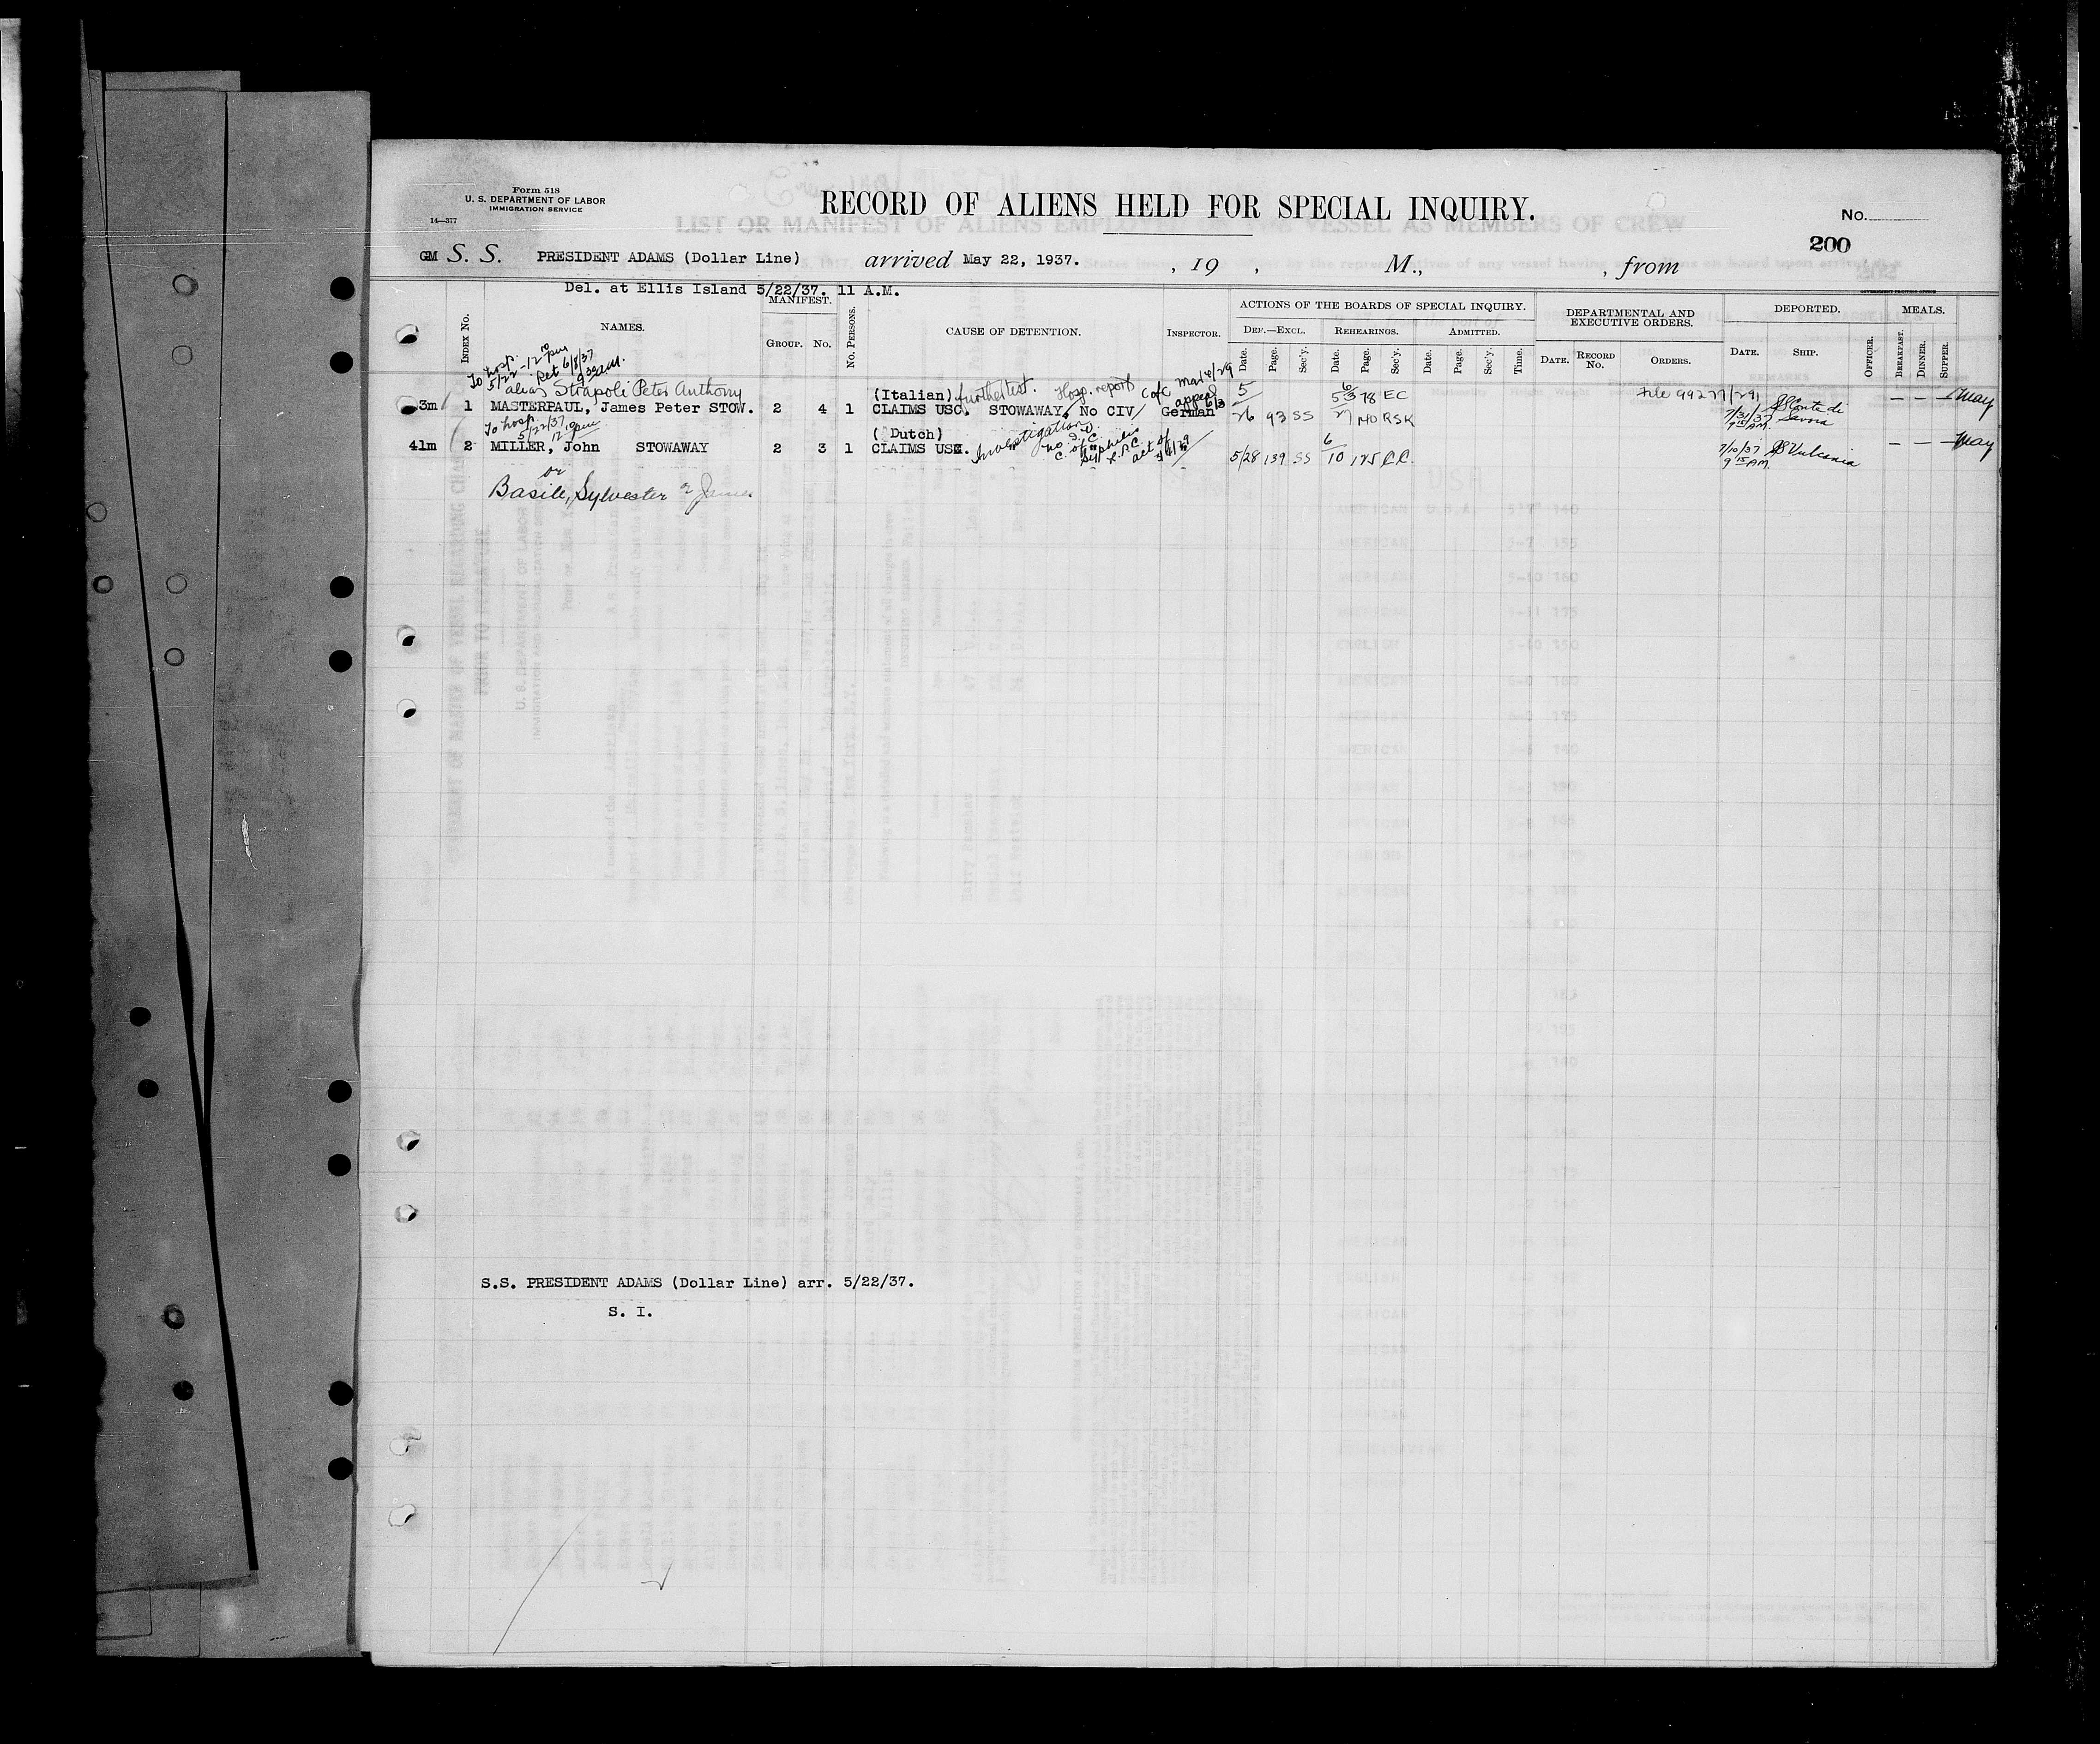 Form 518
U. S. DEPARTMENT OF LABOR
IMMIGRATION SERVICE
14—377
RECORD OF ALIENS HELD FOR SPECIAL INQUIRY.
No.
200
GM S. S. PRESIDENT ADAMS (Dollar Line) arrived May 22, 1937. , 19 , M., , from
Del. at Ellis Island 5/22/37. 11 A.M.
INDEX No. NAMES. MANIFEST. GROUP. No. No. PERSONS. CAUSE OF DETENTION. INSPECTOR. ACTIONS OF THE BOARDS OF SPECIAL INQUIRY. DEPARTMENTAL AND EXECUTIVE ORDERS. DEPORTED. MEALS.
DEF.—EXCL. REHEARINGS. ADMITTED.
Date. Page. Sec'y. Date. Page. Sec'y. Date. Page. Sec'y. Time. DATE. RECORD No. ORDERS. DATE. SHIP. OFFICER. BREAKFAST. DINNER. SUPPER.
To hosp.
5/22-12 10 pm
Ret 6/8/37
alias Strapoli Peter Anthony
(Italian) further test. Hosp. report C of C appeal 6/3
3m 1 MASTERPAUL, James Peter STOW. 2 4 1 CLAIMS USC. STOWAWAY, No CIV German
5/26 93 SS 5 78 EC 140 RSK
File 99277/291
7/31/37 SS Conte di Savoia
9 15 AM.
— — — May
To hosp.
5/22/37
12 10 pm
(Dutch) Investigation
41m 2 MILLER, John STOWAWAY 2 3 1 CLAIMS USC.
C. of C. Syphilis
5/28 139 SS 6/10 175
7/10/37 SS Vulcania
9 15 AM.
— — — May
or
Basile, Sylvester or James
S.S. PRESIDENT ADAMS (Dollar Line) arr. 5/22/37.
S. I.